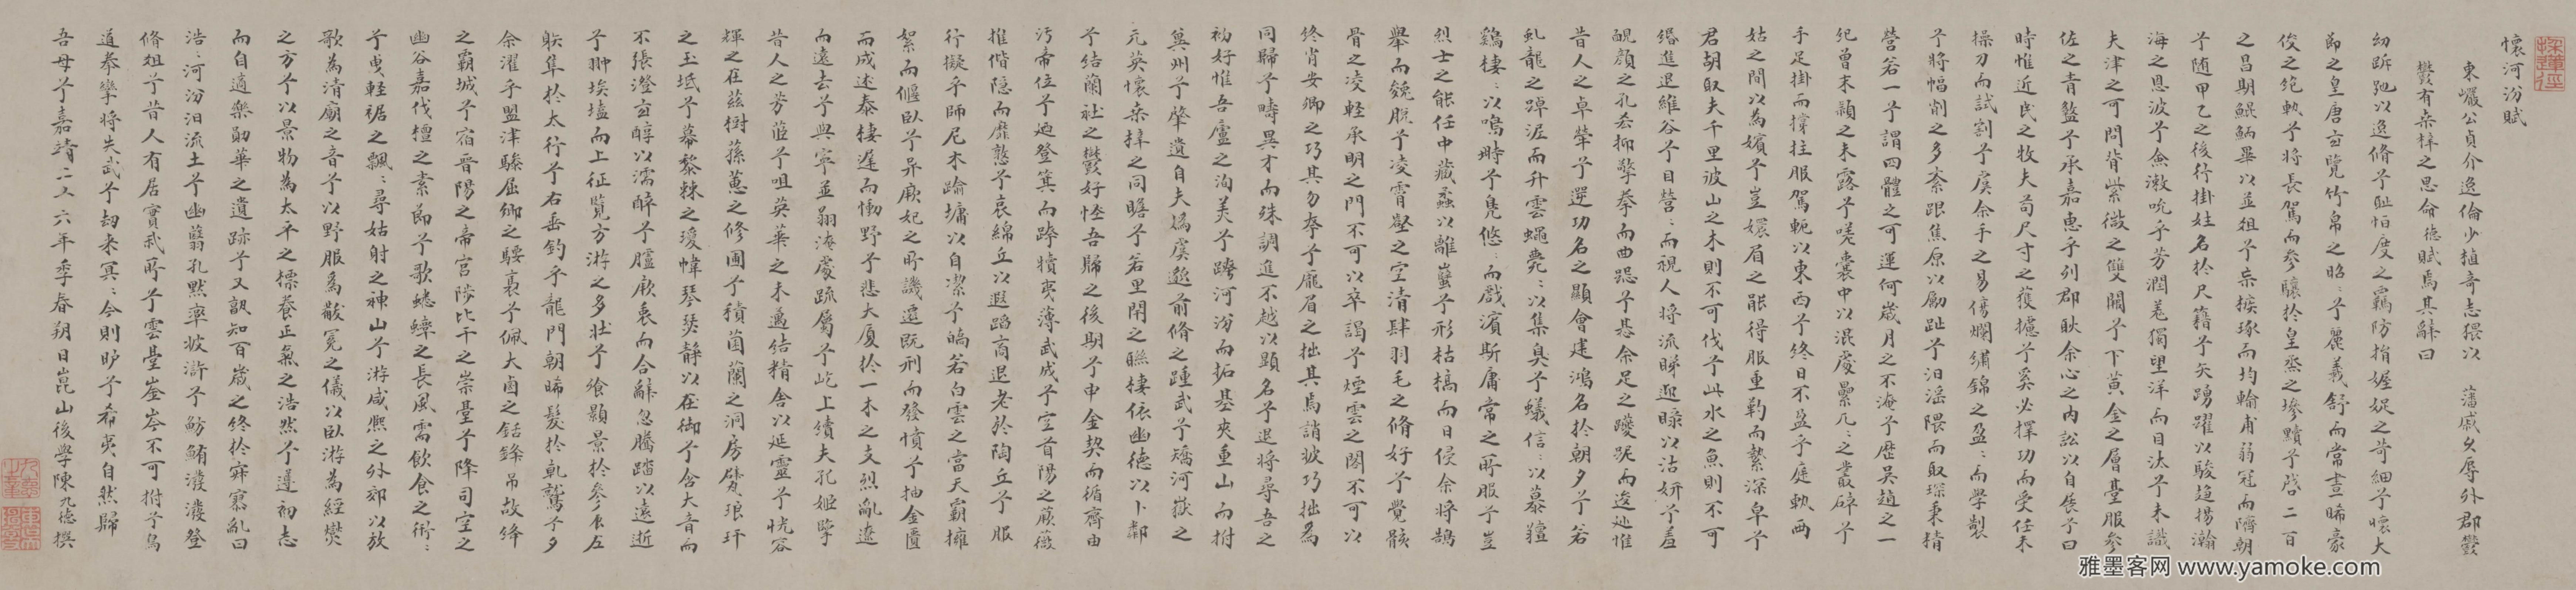 懷河汾賦
東巗公貞介逸倫少植奇志猥以 藩戚久辱外郡鬱
鬱有桑梓之思命德賦焉其辭曰
幼跅弛以逸脩兮恥怕度之羈防揹媉娖之苛細兮懷大
節之皇唐玄覽竹帛之昭〻兮麗羲舒而常晝晞豪
俊之絕軌兮將長駕而參驤於皇烝之墋黷兮啓二百
之昌期鯤鲕畢以登俎兮宗擯琢而均輪甫弱冠而隮朝
兮隨甲乙之後行掛姓名於尺籍兮矢踴躍以駿趨揚瀚
海之恩波兮魚潄吮乎芳潤羌獨望洋而目汰兮未識
夫津之可問背紫微之雙闕兮下黃金之層臺服參
佐之青盭兮承嘉惠乎列郡耿余心之內訟以自展兮曰
時惟近民之牧夫苟尺寸之蒦攄兮奚必擇功而受任未
操刀而試割兮虞余手之易傷斕繡錦之盈〻而學製
兮將幅削之多紊跟焦原以勵趾兮汨滛隈而取琛秉精
營若一兮謂四體之可運何歲月之不淹兮歷吳越之一
紀曾末穎之未露兮嗟囊中以混處纍凡〻之叢碎兮
手足掛而撐拄服駕軛以東西兮終日不盈乎庭軌西
姑之閒以為嬪兮豈嬛眉之能得服重靮而縶深皁兮
君胡取夫千里波山之木則不可伐兮此水之魚則不可
緡進退維谷兮目營〻而視人將流睇迎睩以沽妍兮羞
靦顏之孔忝抑擎拳而曲跽兮惎余足之躩踀而逡𨒪惟
昔人之卓犖兮選功名之顯會建鴻名於朝夕兮若
虬龍之踔泥而升雲蠅薨〻以集臭兮蟻信〻以慕羶
鷄棲〻以鳴塒兮鳧悠〻而戲濱斯庸常之所服兮豈
烈士之能任中藏蠡以離蠥兮形枯槁而日侵余將鵠
舉而兔脫兮凌霄壑之空清肆羽毛之脩好兮覺骸
骨之凌輕承明之門不可以卒謁兮煙雲之閣不可以
終肖安卿之巧其勿奪兮龐眉之拙其焉誚彼巧拙為
同歸兮疇異才而殊調進不越以顯名兮退將尋吾之
初好惟吾廬之洵美兮躋河汾而拓基夾重山而拊
冀州兮肇遺自夫媯虞邀前脩之踵武兮矯河嶽之
元英懷桑梓之同瞻兮若里閈之聯棲依幽德以卜鄰
兮結蘭社之鬱好怪吾歸之後期兮申金契而循齊由
污帝位兮廼登箕而蹕犢夷薄武成兮空首陽之蕨薇
推偕隱而靡憝兮哀綿丘以遐蹈商退老於陶丘兮服
行擬乎師尼木踰墉以自潔兮皜若白雲之當天霸擁
絮而偃臥兮卑厥妃之所譏遷既刑而發憤兮抽金匱
而成述泰棲遲而慟野兮悲大廈於一木之支烈亂遼
而遠去兮與寧並翱淹處疏屬兮屹上續夫孔姬擥
昔人之芳茝兮咀英華之未邁結精舍以延靈兮恍容
輝之在茲樹蓀蕙之修圃兮積菌蘭之洞房甓琅玕
之玉坻兮幕黎棘之瓊幃琴瑟靜以在御兮含大音而
不張澄玄醇以濡醉兮臚厥衷而合辭忽騰踏以遠逝
兮翀埃𡏖而上征覽方游之多壯兮飨顥景於參辰左
躾隼於太行兮右垂釣乎龍門朝晞髮於虬鷲兮夕
余濯乎盟津驂屈卿之騕裊兮佩大鹵之銛鋒吊故絳
之霸城兮宿晉陽之帝宮陟比干之崇臺兮降司空之
幽谷嘉伐檀之素節兮歌蟋蟀之長風需飲食之衎〻
兮曳輕裾之飄〻尋姑射之神山兮游咸熙之外郊以放
歌為清廟之音兮以野服為黻冕之儀以臥游為經燮
之方兮以景物為太平之標養正氣之浩然兮逢初志
而自適樂勛華之遺跡兮又孰知百歲之終於寂寞亂曰
浩〻河汾汨流土兮幽蓊孔黙率坡滸兮魴鮪潑潑登
脩俎兮昔人有居實我所兮雲臺崟岑不可拊兮鳥
道拳攣將失武兮劫來冥〻今則旷兮希夷自然歸
吾母兮嘉靖二十六年季春朔日崑山後學陳九德撰
雅墨客网 www.yamoke.com